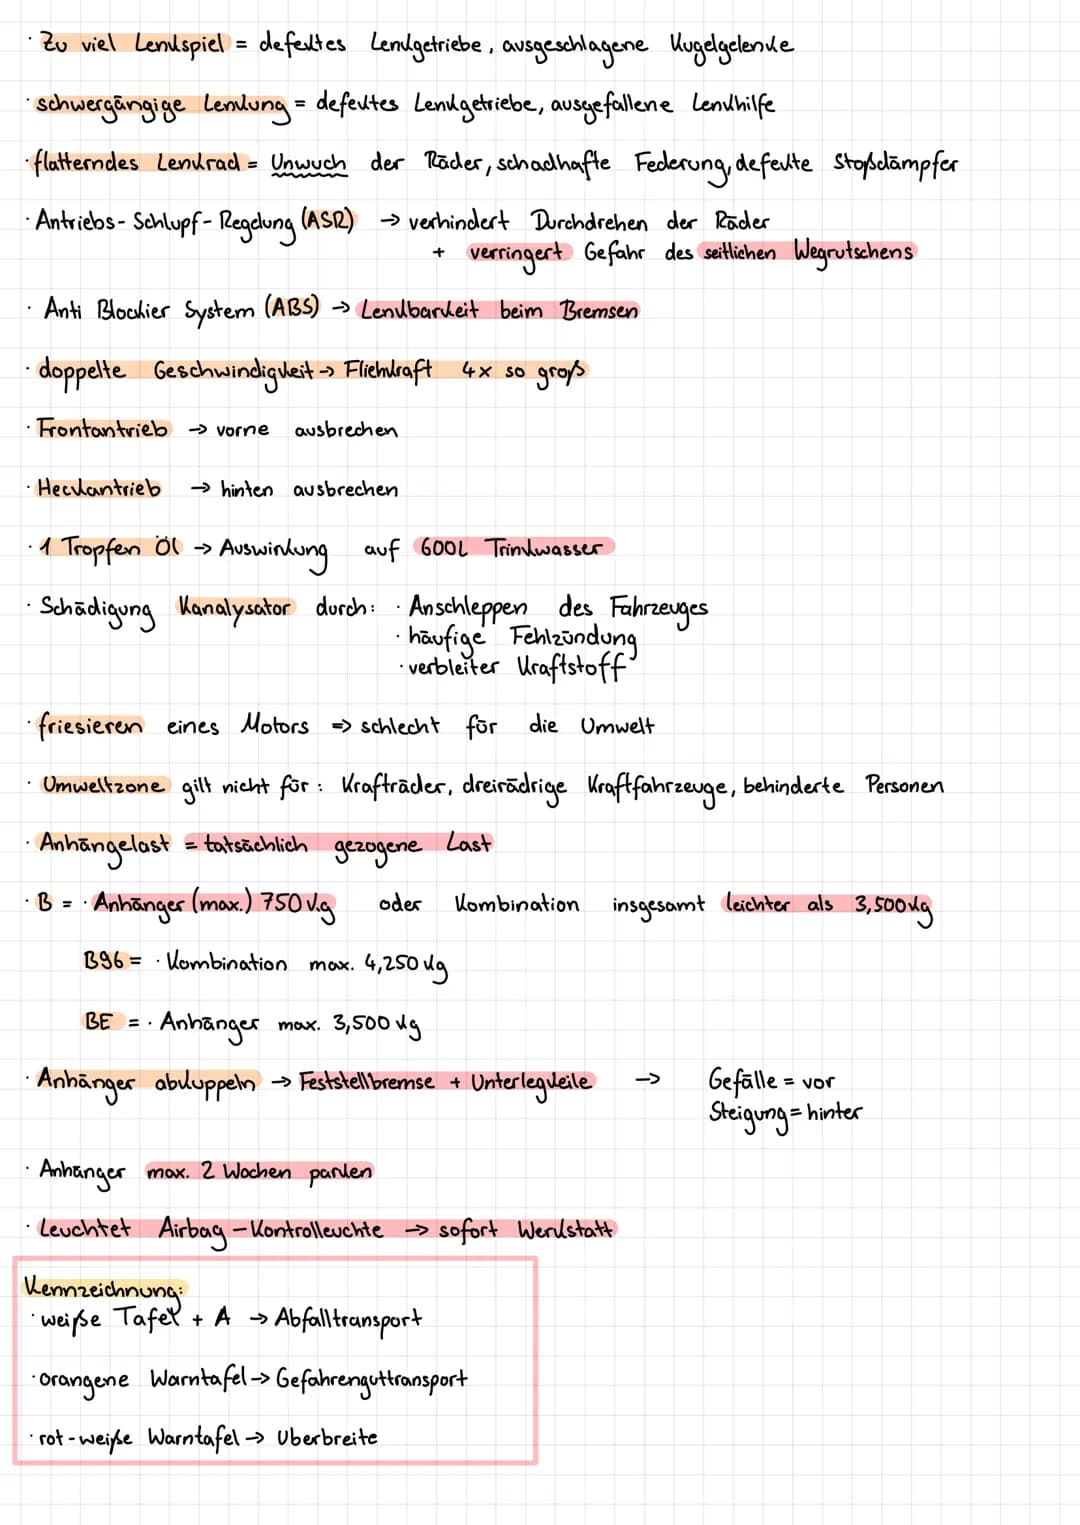 · Zu viel Lenkspiel = defektes Lenkgetriebe, ausgeschlagene Kugelgelenke
· schwergängige Lenkung = defektes Lenkgetriebe, ausgefallene Lenkhilfe
· flatterndes Lenkrad = Unwuch der Räder, schadhafte Federung, defekte Stoßdämpfer
· Antriebs-Schlupf-Regelung (ASR) → verhindert Durchdrehen der Räder
+ verringert Gefahr des seitlichen Wegrutschens
· Anti Blockier System (ABS) → Lenkbarkeit beim Bremsen
· doppelte Geschwindigkeit → Fliehkraft 4x so groß
· Frontantrieb → vorne ausbrechen
· Heckantrieb → hinten ausbrechen
· 1 Tropfen Öl → Auswirkung auf 600L Trinkwasser
· Schädigung Kanalysator durch: · Anschleppen des Fahrzeuges
· häufige Fehlzündung
· verbleiter Kraftstoff
· friesieren eines Motors => schlecht für die Umwelt
· Umweltzone gilt nicht für: Krafträder, dreirädrige Kraftfahrzeuge, behinderte Personen
· Anhängelast = tatsächlich gezogene Last
· B = · Anhänger (max.) 750 kg oder Kombination insgesamt leichter als 3,500 kg
B96 = · Kombination max. 4,250 kg
BE = · Anhänger max. 3,500 kg
· Anhänger abkuppeln → Feststellbremse + Unterlegkeile → Gefälle = vor
Steigung = hinter
· Anhänger max. 2 Wochen parken
· Leuchtet Airbag-Kontrolleuchte → sofort Werkstatt
Kennzeichnung:
· weiße Tafel + A → Abfalltransport
· orangene Warntafel → Gefahrenguttransport
· rot-weiße Warntafel → Überbreite